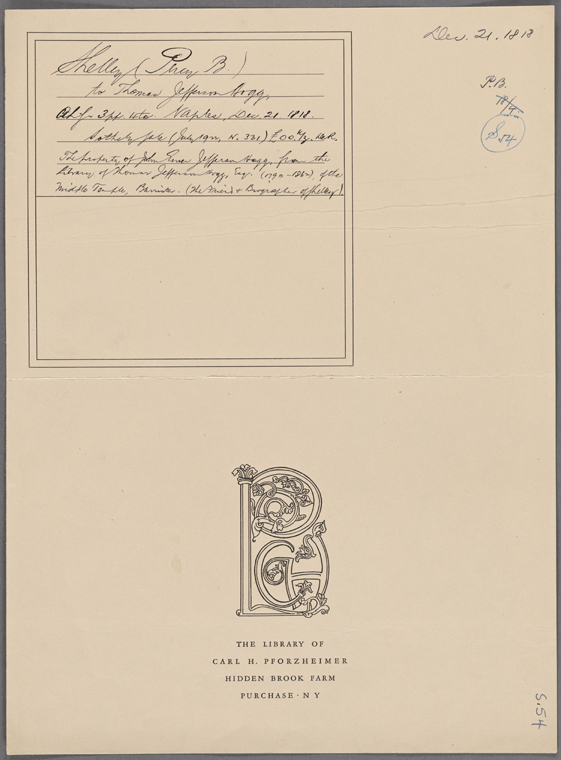 Dec. 21. 1818
P.B.
S 54
Shelley (Percy B.)
to Thomas Jefferson Hogg,
3 pp. 4to. Naples, Dec. 21. 1818.
Sotheby sale (July 1920, N. 331)
The property of John Jefferson Hogg, from the
Library of Thomas Jefferson Hogg, Esq. (1792-1862), of the
Middle Temple, Barrister. (the friend & Biographer of Shelley).
THE LIBRARY OF
CARL H. PFORZHEIMER
HIDDEN BROOK FARM
PURCHASE · N Y
S.54